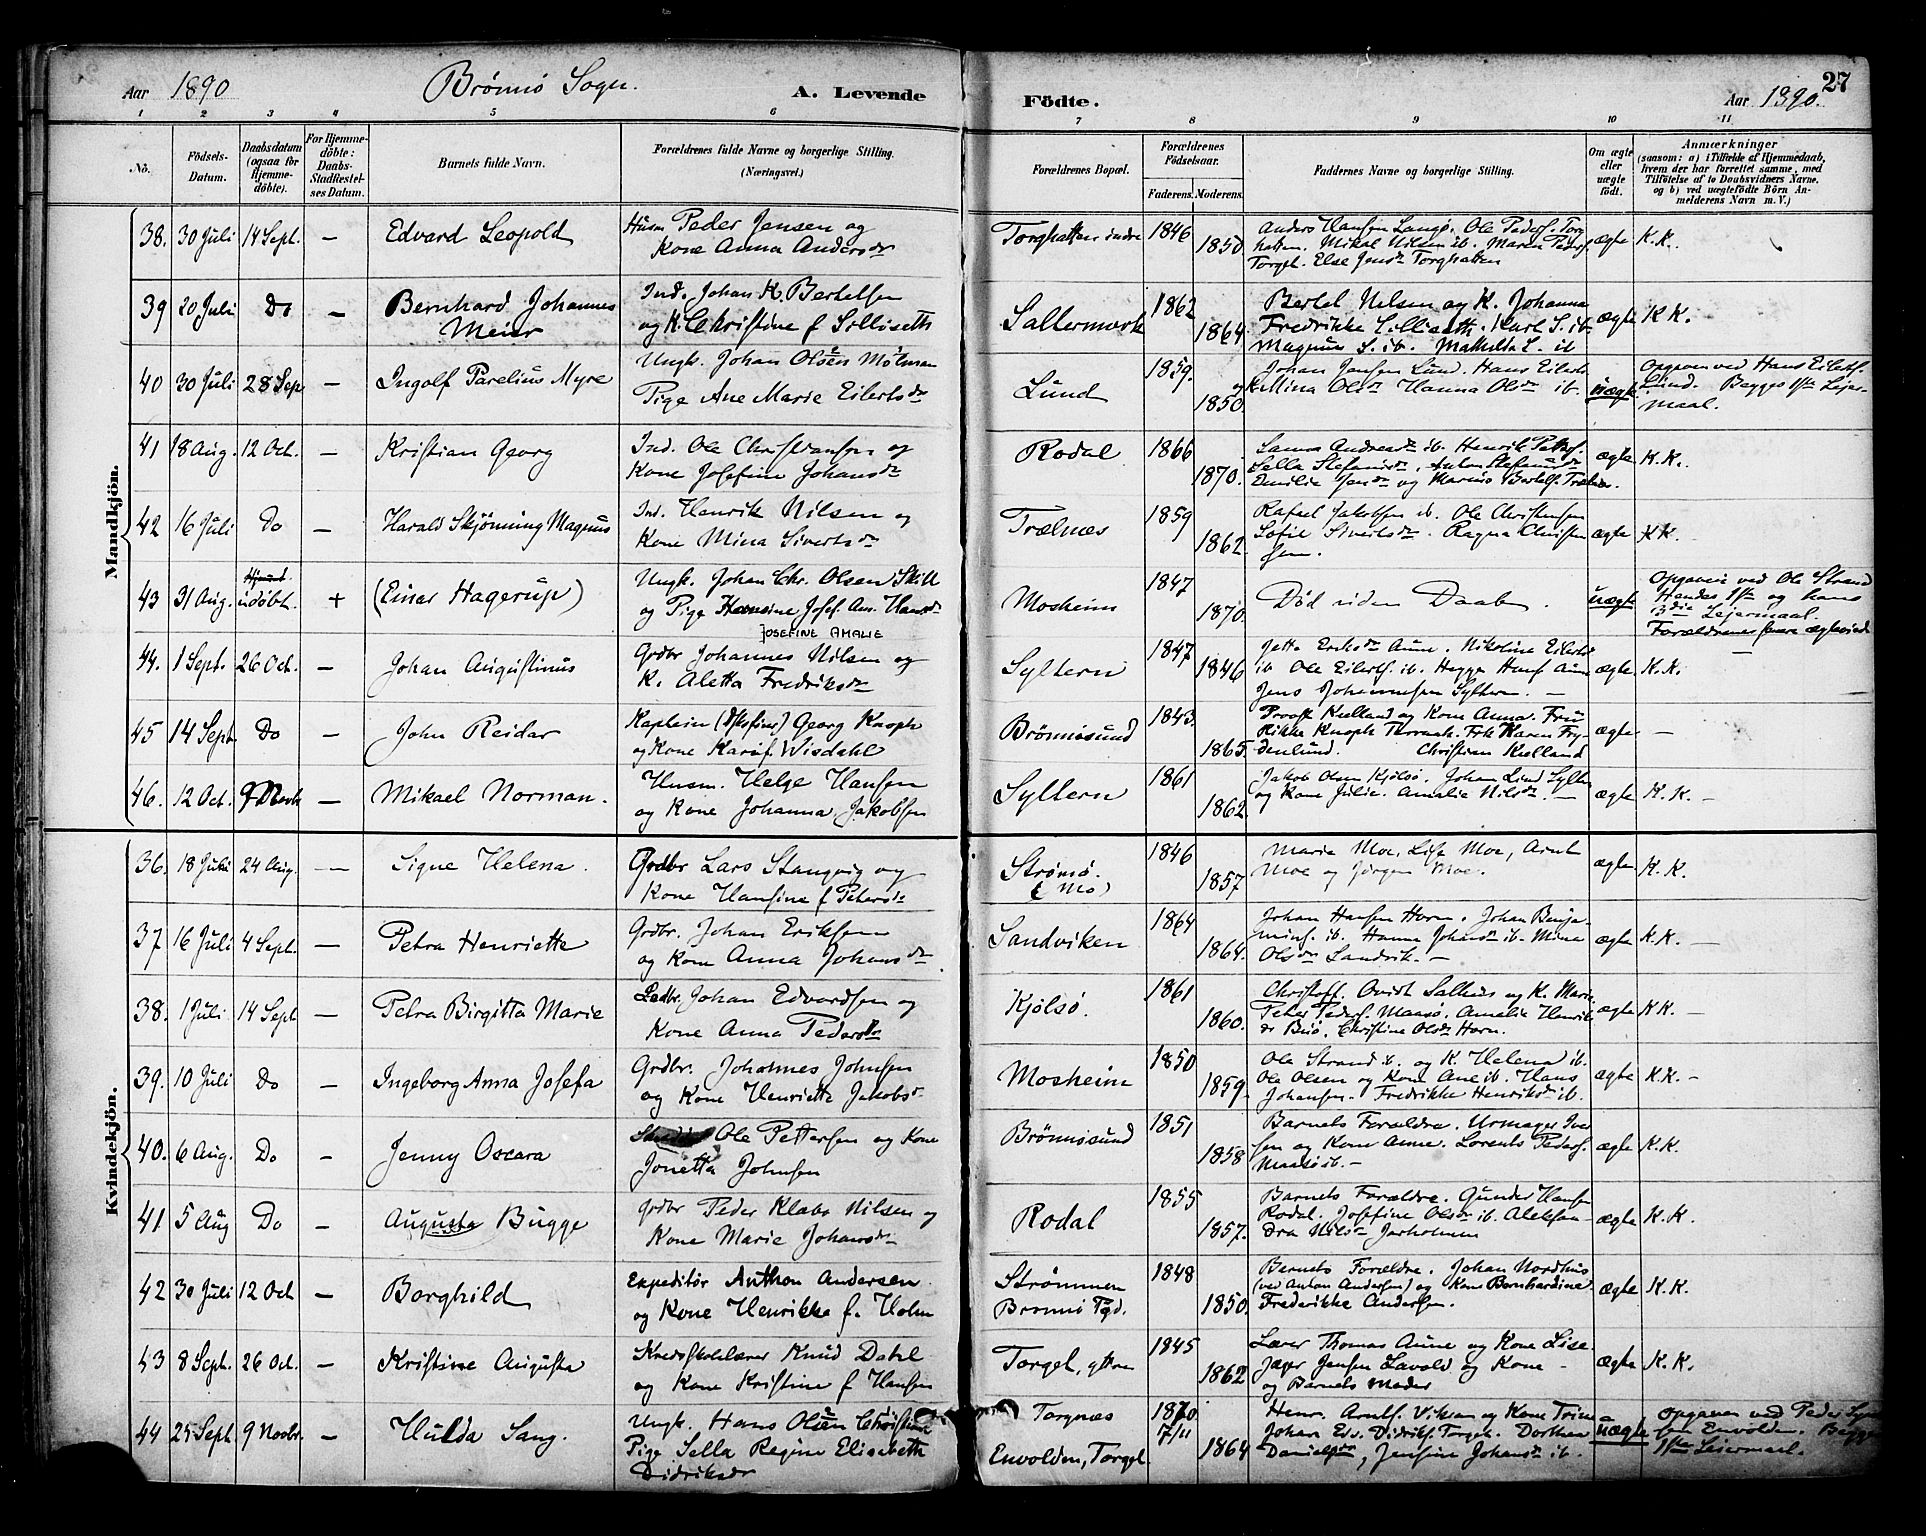 Aar 1890 Brønnø Sogn. A. Levende
Födte. Aar 1890. 27
1 2 3 4 5 6 7 8 9 10 11
No. Födsels-Datum. Daabsdatum (ogsaa for Hjemme-döbte). For Hjemme-döbte: Daabs-Stadfæstel-ses Datum. Barnets fulde Navn. Forældrenes fulde Navne og borgerlige Stilling. (Næringsvei.) Forældrenes Bopæl. Forældrenes Födselsaar. Faderens. Moderens. Faddernes Navne og borgerlige Stilling. Om ægte eller uægte födt. Anmærkninger (saasom: a) i Tilfælde af Hjemmedaab, hvem der har forrettet samme, med Tilföielse af to Daabsvidners Navne, og b) ved uægtefödte Börn An-melderens Navn m. V.)
Mandkjön.
38. 30 Juli 14 Sept. — Edvard Leopold Husm Peder Jensen og
Kone Anna Andersdr
Torghatten indre 1846 1850 Anders Hansen Langø. Ole Peders. Torg
hatten. Mikal Nilsen ib. Maren Peders.
Torget. Else Jensdr Torghatten ægte K.K.
39 20 Juli Do — Bernhard Johannes
Meier Ind. Johan K. Bertelsen
og K. Christine f Sillisethh
Saltermark 1862 1864 Bertel Nilsen og K. Johanna
Fredrikke Karl S. ib.
Magnus S. ib. Mathilda S. ib ægte K K.
40 30 Juli 28 Sep — Ingolf Parelius Myre Ungk. Johan Olsen Mølman
Pige Ane Marie Eilertsdr
Lund 1859. 1850. Johan Jensen Lund. Hans Eilerts
og K. Mina Olsdr Hanna Olsdr ib. uægte Opgaven ved Hans Eilertss.
Lund. Begges 1ste Leier-
maal.
41 18 Aug. 12 Oct. — Kristian Georg Ind. Ole Christiansen og
Kone Josefine Johansdr
Rodal 1866 1870. Andreasdr ib. Henrik
Sella Stefansdr, Anton
Emilie Jensdr og Marius Bertels. ægte K.K.
42 16 Juli Do — Harald Skjønning Magnus Ind. Henrik Nilsen og
Kone Mina Sivertsdr
Trælnæs 1859 1862. Rafael Jakobsen ib. Ole Christensen
Sofie Sivertsdr. Ragna Christen
sen. ægte K K.
43 31 Aug. udøbt. + (Einar Hagerup) Ungk. Johan Chr. Olsen Skill
og Pige Hansine Josef. Am. Hansdr
JOSEFINE AMALIE
Mosheim 1847 1870. Død uden Daab. uægte Opgaven ved Ole Strand
Hendes 1ste og hans
2die Leiermaal.
Forældrenes senere ægteviede
44. 1 Sept. 26 Oct. — Johan Augustinus Grdbr Johannes Nilsen og
K. Aletta Fredriksdr
Syltern 1847 1846 Jetta Eriksdr Aune. Nikoline Eilertsd
ib Ole Eilerts. ib. Hegge Aune
Jens Johannesen Syltern. — ægte K.K.
45 14 Sept Do — John Reidar Kaptein Georg Knoph
og Kone Wisdahl
Brønnøsund 1843. 1865. Provst Kielland og Kone Anna. Fru
Rikke Knoph Frk Karen Fry
denlund. Christian Kielland ægte —
46. 12 Oct. 9 Novbr — Mikael Norman. Husm. Helge Hansen
og Kone Johanna Jakobsen
Syltern 1861 1862. Jakob Olsen Kjølsø. Johan Lund Syltern
og Kone Julie. Amalie Nilsdr. — ægte K.K. —
Kvindekjön.
36. 18 Juli 24 Aug. — Signe Helena. Grdbr Lars Stangvig og
Kone Hansine f Petersdr
Strømø. (Mo) 1846 1857 Maria Moe, Lise Moe, Arnt
Moe og Jørgen Moe. ægte K.K.
37 16 Juli 4 Sept. — Petra Henriette Grdbr. Johan Eriksen
og Kone Anna Johansdr
Sandviken 1864 1864. Johan Hansen Horn. Johan Benja
mins. ib. Hanna Johansdr ib. Mina
Olsdr Sandvik. — ægte K.K. —
38. 1 Juli 14 Sept — Petra Birgitta Marie Ledbr. Johan Edvardsen og
Kone Anna Pedersdr
Kjølsø. 1861 1860. Christoff. Qvist Salhus og K. Marie
Peter Peders. Maasø. Amalie Henrik
Christine Olsdr Horn. ægte K K. —
39. 10 Juli Do — Ingeborg Anna Josefa Grdbr. Johannes Johnsen
og Kone Henriette Jakobsdr
Mosheim 1850 1859. Ole Strand ib. og K. Helena ib.
Ole Olsen og Kone Ane ib. Hans
Johansen. Fredrikke Henriksdr ib. ægte K.K. —
40. 6 Aug. Do — Jenny Oscara Ole Pettersen og Kone
Jonetta Johnsen
Brønnøsund 1851 1858 Barnets Forældre. Urmager Iver
sen og Kone Anne. Lorents Peders.
Maasø ib. — ægte K.K.
41 5 Aug Do — Augusta Bugge Grdbr Peder Klabo Nilsen og
Kone Marie Johansdr
Rodal 1855 1857. Barnets Forældre. Gunder Hansen
Rodal. Josefine Olsdr ib. Aleksan
dra Nilsdr Jarholmen ægte K.K.
42 30 Juli 12 Oct — Borghild Expeditør Anthon Andersen.
og Kone Henrikke f. Holm
Strømmen
Brønnø Pgd. 1848 1850 Barnets Forældre. Johan Nordhus
(ved Anton Andersen) og Kone Bernhardine.
Frederikke Andersen. ægte K.K.
43 8 Sept. 26 Oct. — Kristine Augusta Kredsskolelærer Knud Dahl
og Kone Kristine f Hansen
Torget, ytre 1845 1862 Lærer Thomas Aune og Kone Lise
Jæger Jensen Lavold og Kone —
og Barnets Moder ægte K.K.
44 25 Sept 9 Novbr. — Hulda Sang. Ungk. Hans Olsen
Pige Sella Regine Elisabeth
Didriksdr
Torgnæs
Envolden, Torget. 1870. 7/11 1864 Henr. Arnts. Viksen og Kone Trine
Johan Edv. Didriks. Torget. Dorthea
Danielsdr, Jensine Johansdr ib. uægte Opgaven ved Peder
sen Envolden. Begges
1ste Leiermaal.